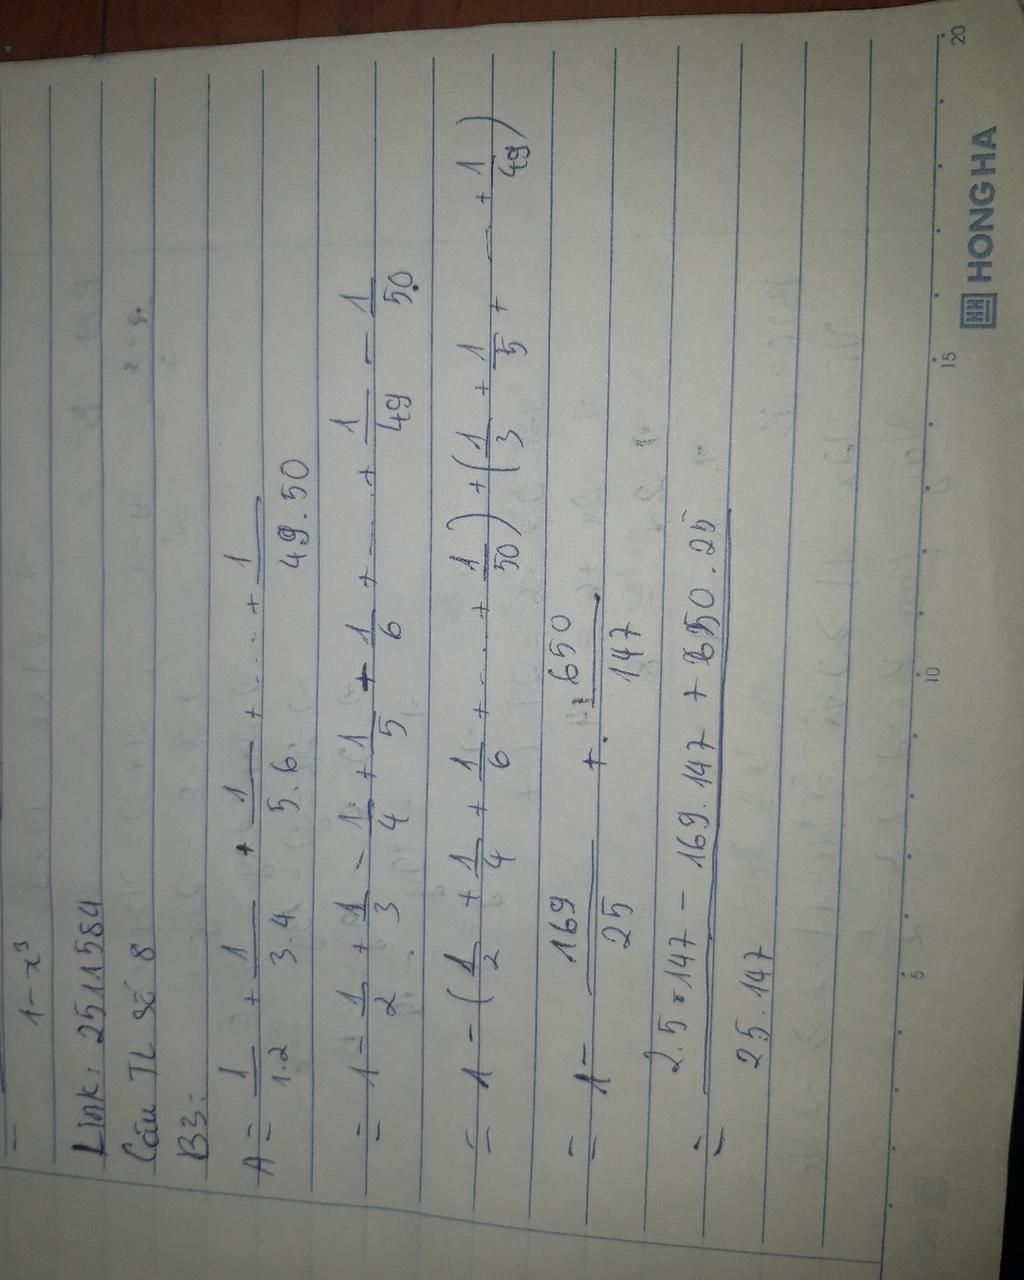 = 1-x³
Link: 2511584
Câu TL số 8
B3:
A = 1/1.2 + 1/3.4 + 1/5.6. + .... + 1/49.50
= 1 - 1/2 + 1/3 - 1/4 + 1/5 + 1/6 + ..... + 1/49 - 1/50
= 1 - (1/2 + 1/4 + 1/6 + ..... + 1/50) + (1/3 + 1/5 + ... + 1/49)
= 1 - 169/25 + 650/147
= (2.5.147 - 169.147 + 650.25)/25.147
HH HONG HA
5 10 15 20